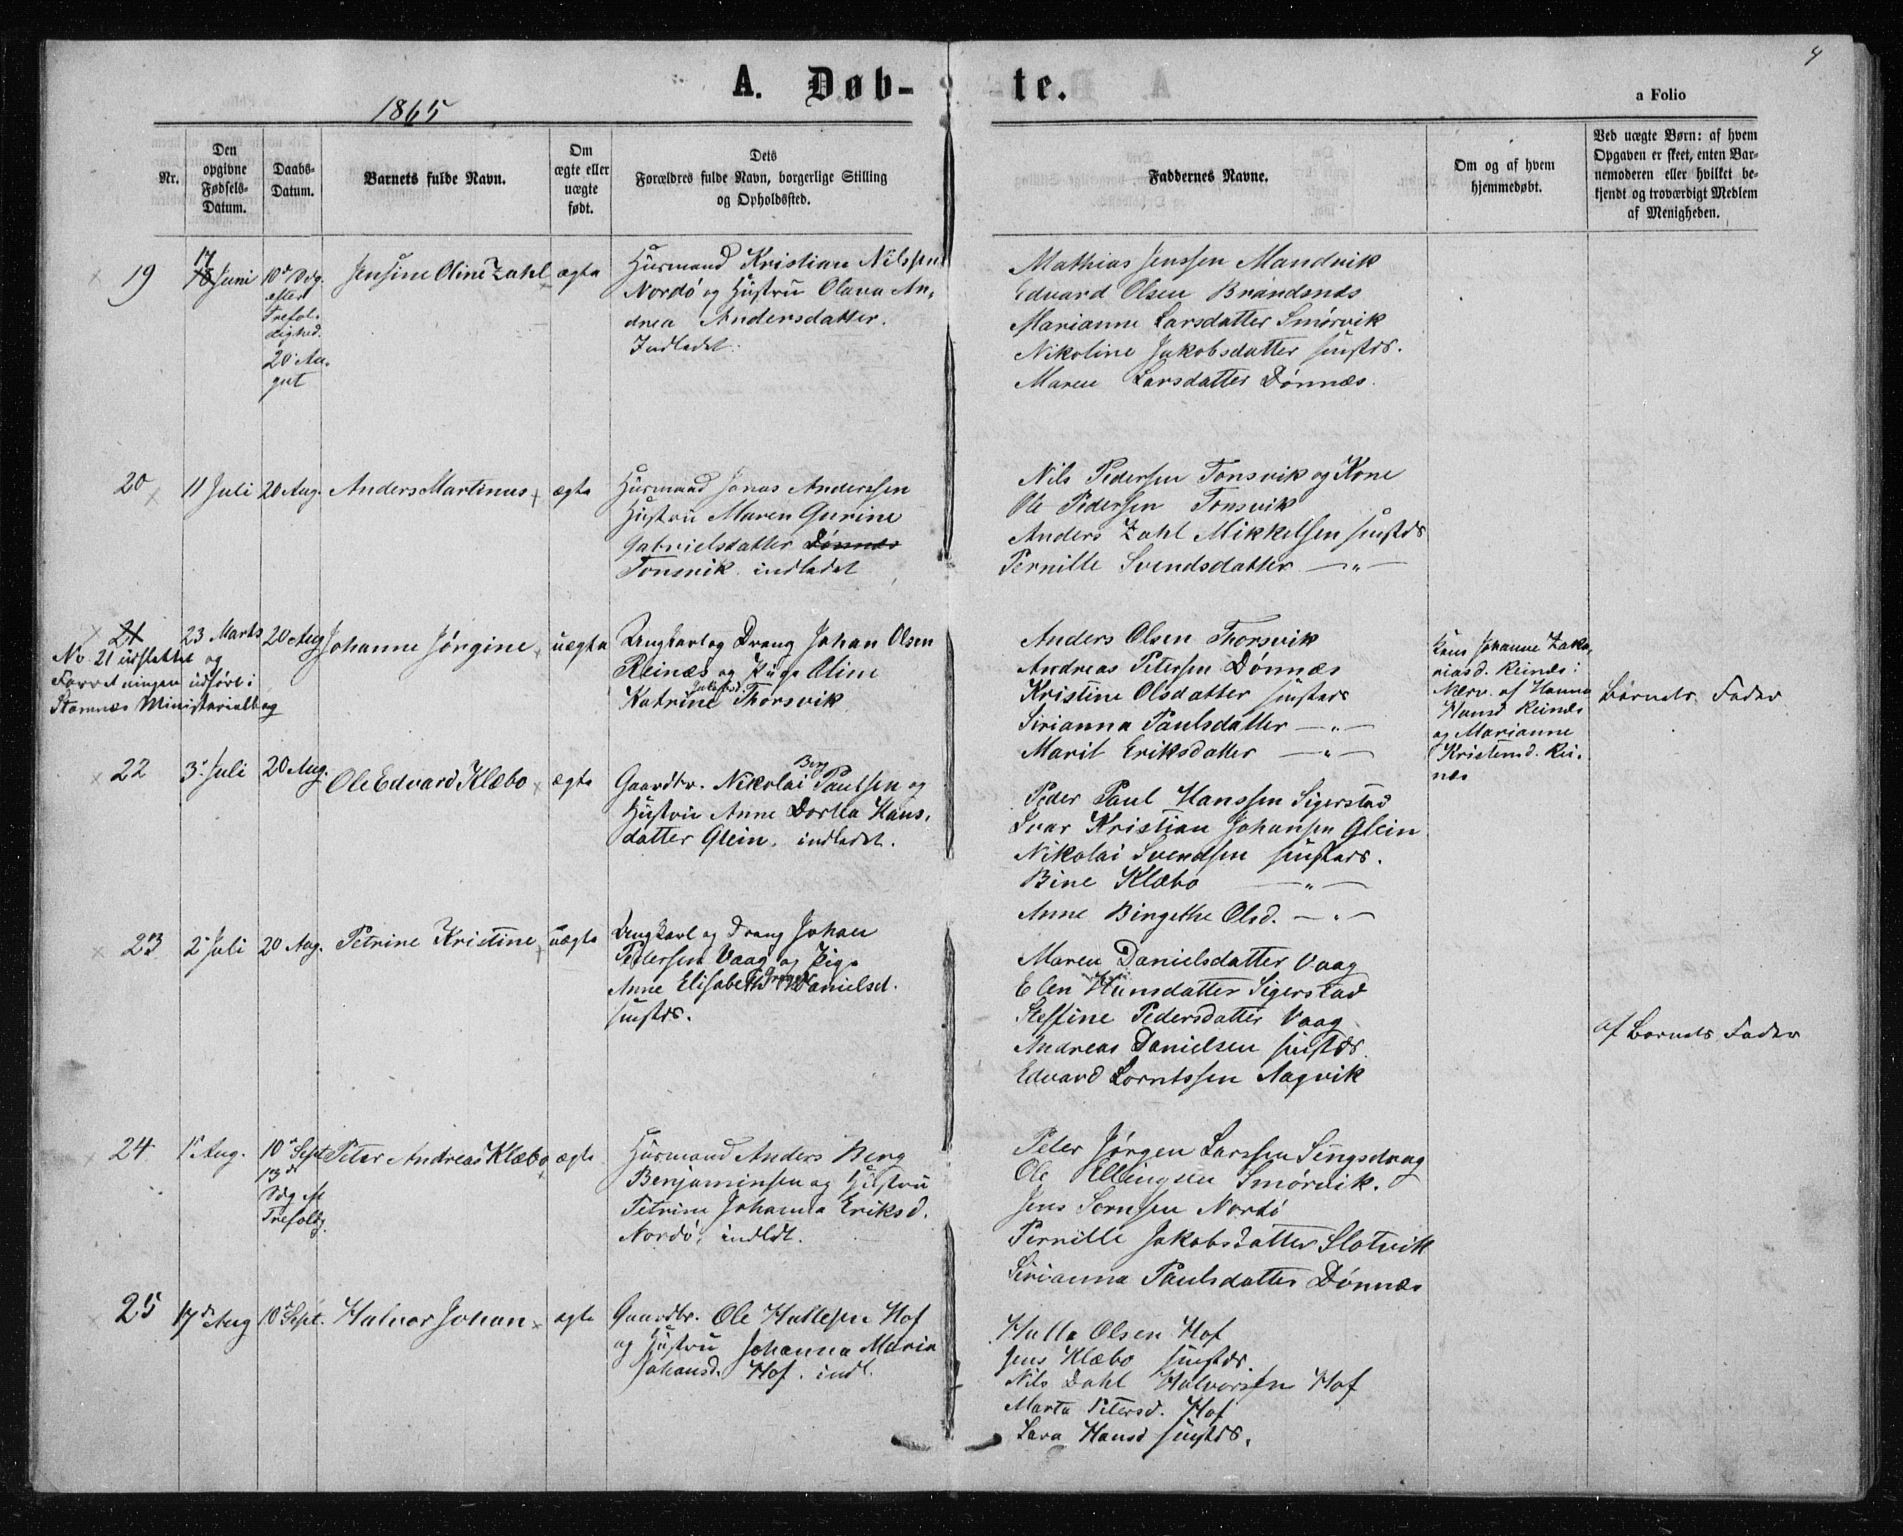 4
A. Døb-te.
a Folio
1865
Nr.
Den
opgivne
Fødsels-
Datum.
Daabs-
Datum.
Barnets fulde Navn.
Om
ægte eller
uægte
født.
Dets
Forældres fulde Navn, borgerlige Stilling
og Opholdssted.
Faddernes Navne.
Om og af hvem
hjemmedøbt.
Ved uægte Børn: af hvem
Opgaven er skeet, enten Bar-
nemoderen eller hvilket be-
kjendt og troværdigt Medlem
af Menigheden.
19
17
Juni
10de Sdg.
efter
Trefol-
dighed.
20 Au-
gut
Jensine Oline Zahl
ægte
Huusmand Kristian Nilssen
Nordö og Hustru Olava An-
drea Andersdatter.
Indledet.
Mathias Jenssen Mandvik
Edvard Olsen Brandsnes
Marianne Larsdatter Smørvik
Nikoline Jakobsdatter sustds.
Maren Larsdatter Dönnæs.
20
11 Juli
20 Aug.
Anders Martinus
ægte
Husmand Jonas Anderssen
Hustru Maren Gurine
Gabrielsdatter Dönnæs
Tonsvik indledet
Nils Pedersen Tonsvik og Kone
Ole Pedersen Tonsvik
Anders Zahl Mikkelsen sustds
Pernille Svendsdatter —"—
21
23 Marts
20 Aug
Johanne Jørgine
uægte
No 21 udslettet og
Forretningen udført i
Stamnæs Ministerialbog
Ungkarl og Dreng Johan Olsen
Reinæs og Pige Oline
Katrine Thorsvik
Anders Olsen Thorsvik
Andreas Petersen Dönnæs
Kristine Olsdatter sustds
Sirianna Paulsdatter —"—
Marit Eriksdatter —"—
Johanne Zaka-
riasd. Reinæs i
Nærv. af Hanna
Hansd Reinæs
og Marianne
Kristensd. Rei-
næs
Barnets Fader
22
3 Juli
20 Aug.
Ole Edvard Klæbo
ægte
Gaardbr. Nikolai Berg Paulsen og
Hustru Anne Dorthea Hans-
datter Glein, indledet.
Peder Paul Hanssen Sigerstad
Ivar Kristian Johansen Glein
Nikolai Svendsen sustds.
Bine Klæbo —"—
Anne Birgethe Olsd. —"—
23
2 Juli
20 Aug.
Petrine Kristine
uægte
Ungkarl og Dreng Johan
Pedersen Vaag og Pige
Anne Elisabeth Danielsd.
sustds.
Maren Danielsdatter Vaag
Elen Hansdatter Sigerstad
Steffine Pedersdatter Vaag
Andreas Danielsen sustds.
Edvard Lorntssen Aagvik
af Barnets Fader
24
1 Aug.
10 Sept
13de
Sdg. e.
Trefoldg.
Peter Andreas Klæbo
ægte
Husmand Anders Berg
Benjaminsen og Hustru
Petrine Johanna Eriksd.
Nordö, indldt.
Peter Jørgen Larssen Sengsdrag
Ole Ellingsen Smørvik.
Jens Sørnsen Nordö
Pernille Jakobsdatter Slotvik
Sirianna Paulsdatter Dönnæs
25
17de Aug
10 Sept.
Halvor Johan
ægte
Gaardbr. Ole Hallesen Hof
og Hustru Johanna Maria
Johansd. Hof. indl.
Halle Olsen Hof
Jens Klæbo sustds.
Nils Dahl Halvorsen Hof
Marta Petersd. Hof
Sara Hansd sustds.